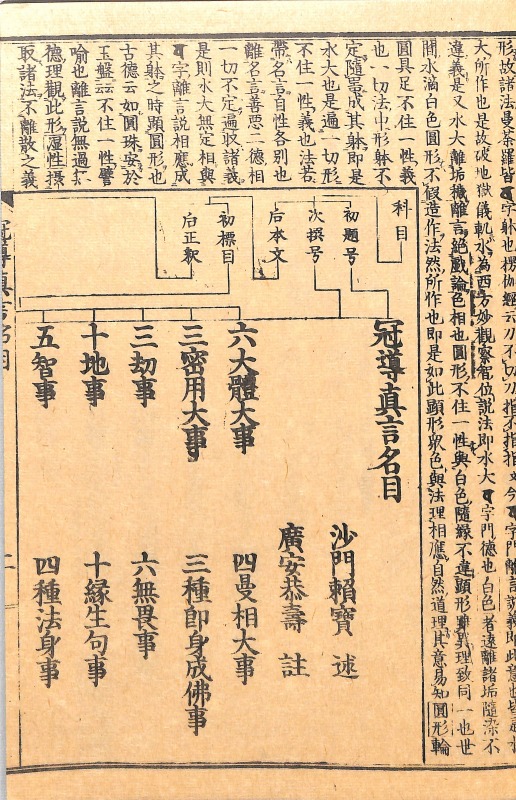 形故諸法曼荼羅皆字躰也楞伽經云刀不切刀指不指指文今字門離言説義即此意也皆
大所作也是故破地獄儀軌水為西方妙觀察智位説法即水大字門德也白色者遠離諸垢隨染不
違義是又水大離垢穢離言絶戲論色相也圓形不住一性與白色隨緣不違顯形雖異理致同一也世
間水滴白色圓形不假造作法然所作也即是如此顯形衆色與法理相應自然道理其意易知圓形輪
圓具足不住一性義
也一切法中形躰不
定隨器成其躰即是
水大也是遍一切形
不住一性義也法若
帶名言自性各別也
離名言善惡一德相
一切不定遍取諸義
是則水大無定相與
字離言説相應成
其躰之時顯圓形也
古德云如圓珠安於
玉盤云云不住一性譬
喻也離言説無過
德理觀此形濕性攝
取諸法不離散之義
科目
初題号
次撰号
后本文
初標目
后正釈
冠導真言名目
沙門頼寶 述
廣安恭壽 註
六大體大事
四曼相大事
三密用大事
三種即身成佛事
三劫事
六無畏事
十地事
十緣生句事
五智事
四種法身事
冠導真言名目
二